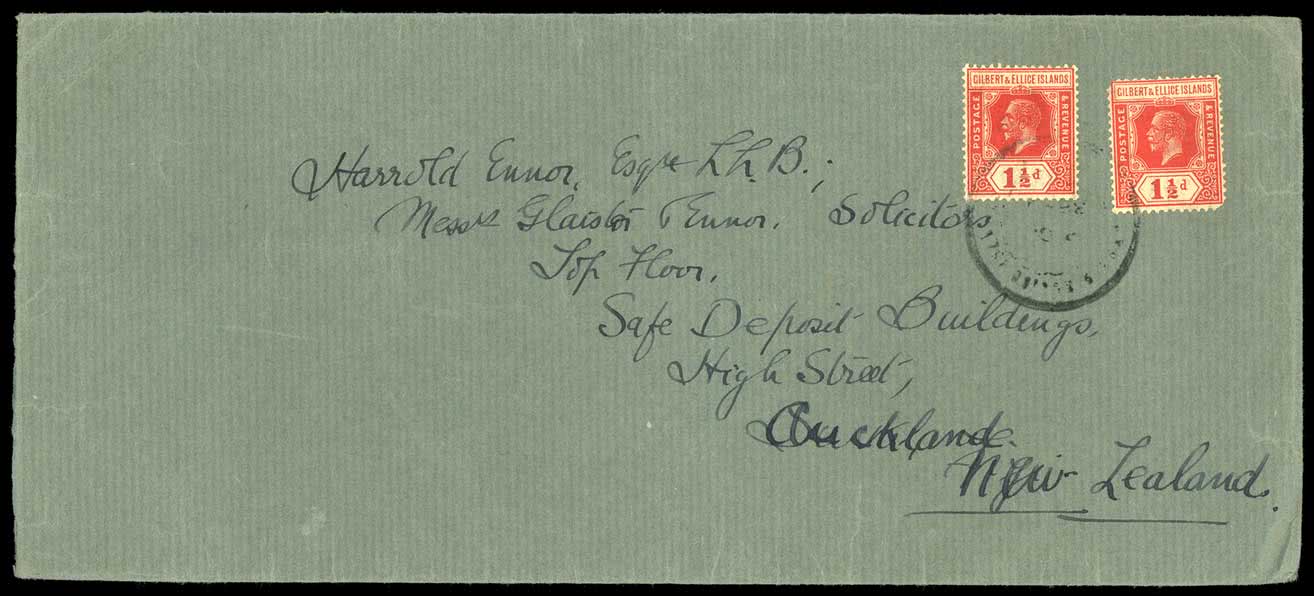 GILBERT & ELLICE ISLANDS
POSTAGE
& REVENUE
1½d
GILBERT & ELLICE ISLANDS
POSTAGE
& REVENUE
1½d
Harrold Ennor, Esqre LL.B.,
Messrs Glaister & Ennor. Solicitors
Top Floor,
Safe Deposit Buildings,
High Street,
Auckland.
New Zealand.